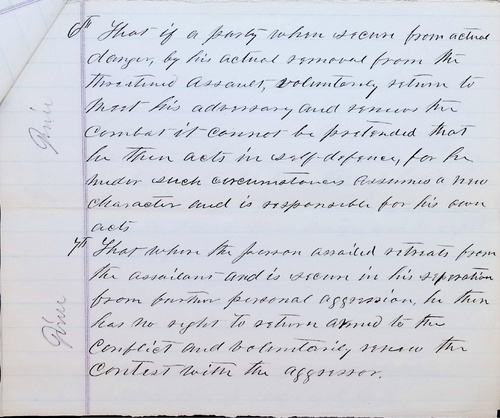 6th That if a party when secure from actual
danger, by his actual removal from the
threatened assault, voluntarily return to
meet his adversary and renews the
combat it cannot be pretended that
he then acts in self-defence, for he
under such circumstances assumes a new
character and is responsible for his own
acts
7th That when the person assailed retreats from
the assailant and is secure in his separation
from further personal aggression, he then
has no right to return armed to the
conflict and voluntarily renew the
contest with the aggressor.
Given
Given